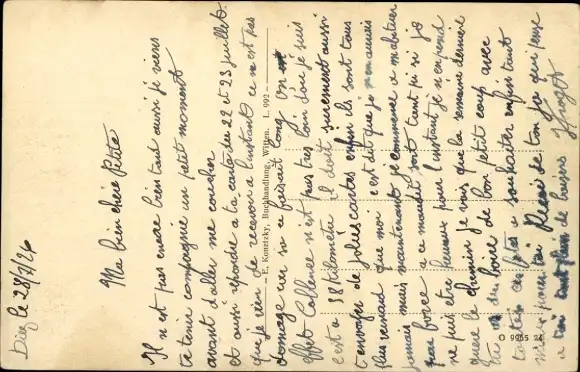 Diez le 28/7/26
Ma bien chère Petite
Il n est pas encore bien tard aussi je viens
te tenir compagnie un petit moment
avant d'aller me coucher
et aussi repondre a ta carte des 22 et 23 juillet
que je vien de recevoir a l'instant ce n est pas
domage car sa ce faisait long
effet Coblence n'est pas tres loin d'ou je suis
c'est a 58 kilometre il doit surement aussi
t envoyer de jolies cartes enfin ils sont tous
plus veinard que moi c'est dit que je n en aurais
jamais mais maintenant je commence a m abituer
force a ce maudit sort tant pis si je
ne puis etre heureux pour l'instant je n en prend
le chemin je vois que la semaine derniere
tu as du boire de bon petit coup avec
toutes ces a souhaiter enfin tant
mieux de ton Jo qui pense
a toi plein de baisers
E. Konetzky, Buchhandlung, Witten. L. 992
O 9955 24